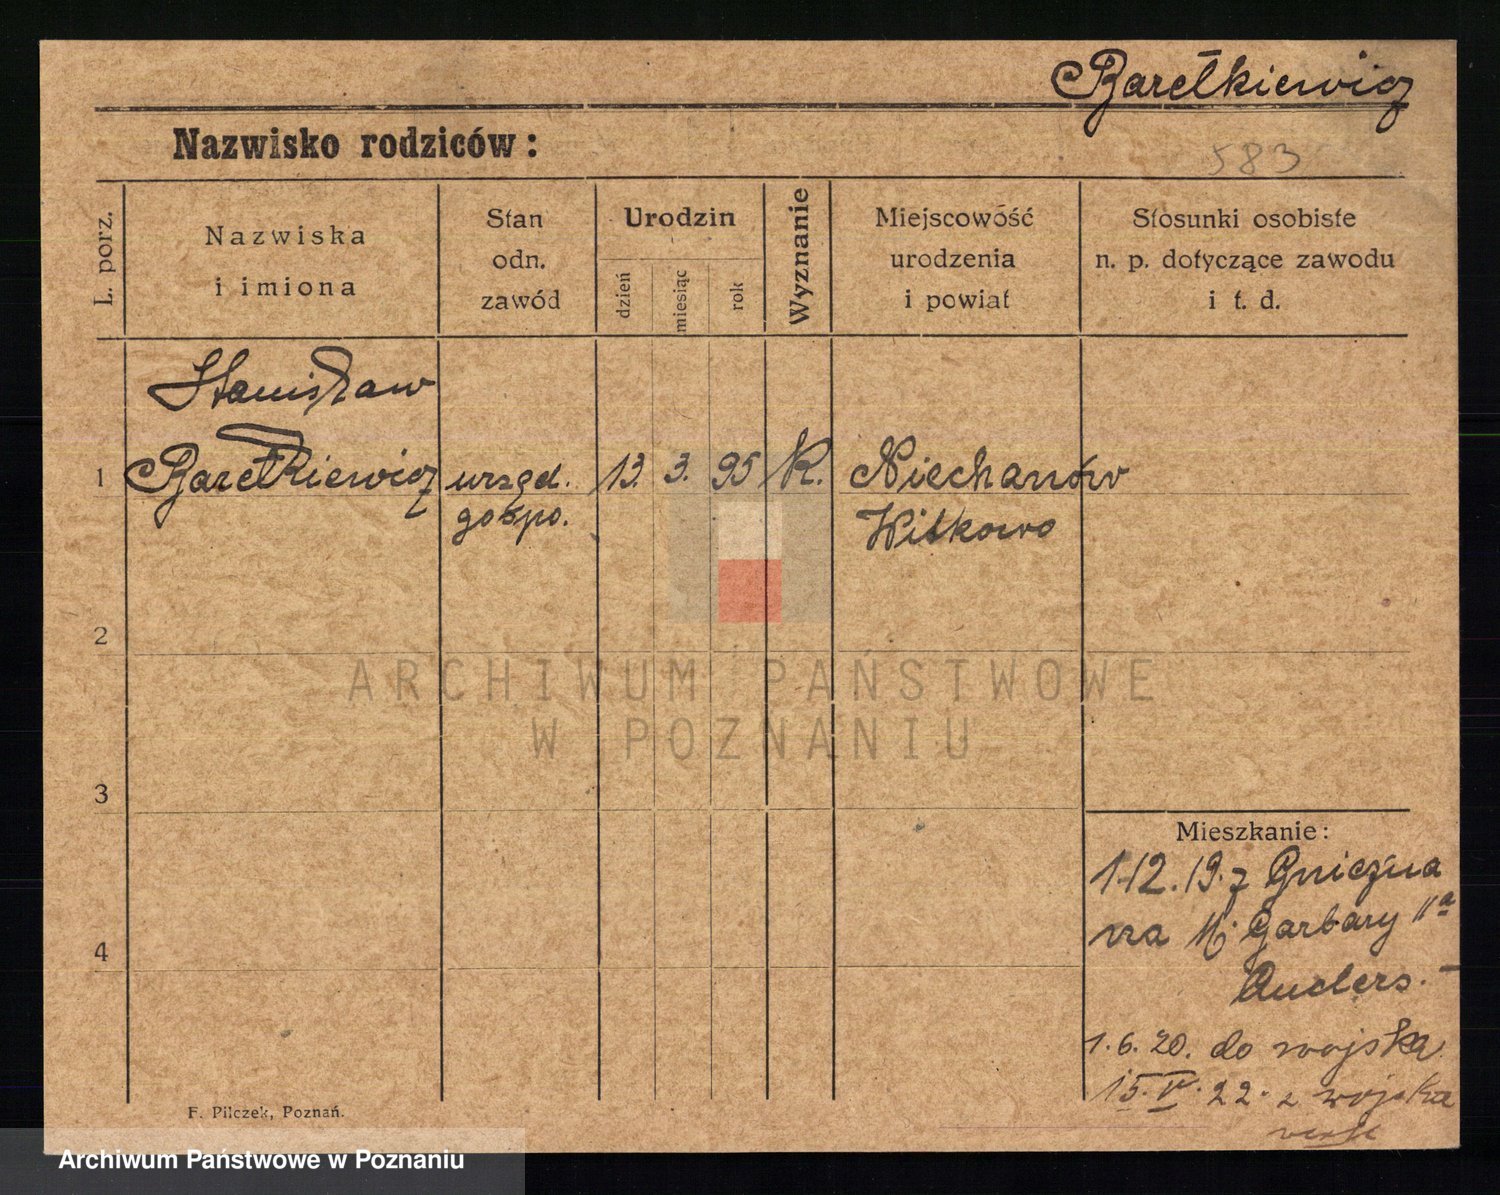 Barełkiewicz
Nazwisko rodziców:
583
L. porz.
Nazwiska
i imiona
Stan
odn.
zawód
Urodzin
dzień
miesiąc
rok
Wyznanie
Miejscowość
urodzenia
i powiat
Stosunki osobiste
n. p. dotyczące zawodu
i t. d.
Stanisław
1 Barełkiewicz urzęd. 13. 3. 95 K. Niechanów
gospo. Witkowo
2
3
4
Mieszkanie:
1-12.19. z Gniezna
na M. Garbary 11a
Anders.
1.6.20. do wojska
15.V.22. z wojska
F. Pilczek, Poznań.
ARCHIWUM PAŃSTWOWE
W POZNANIU
Archiwum Państwowe w Poznaniu